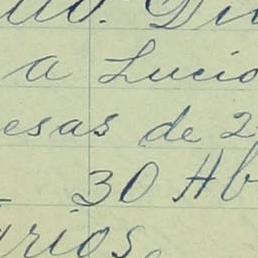 a Lucio
esas de 2
30 Ab
rios